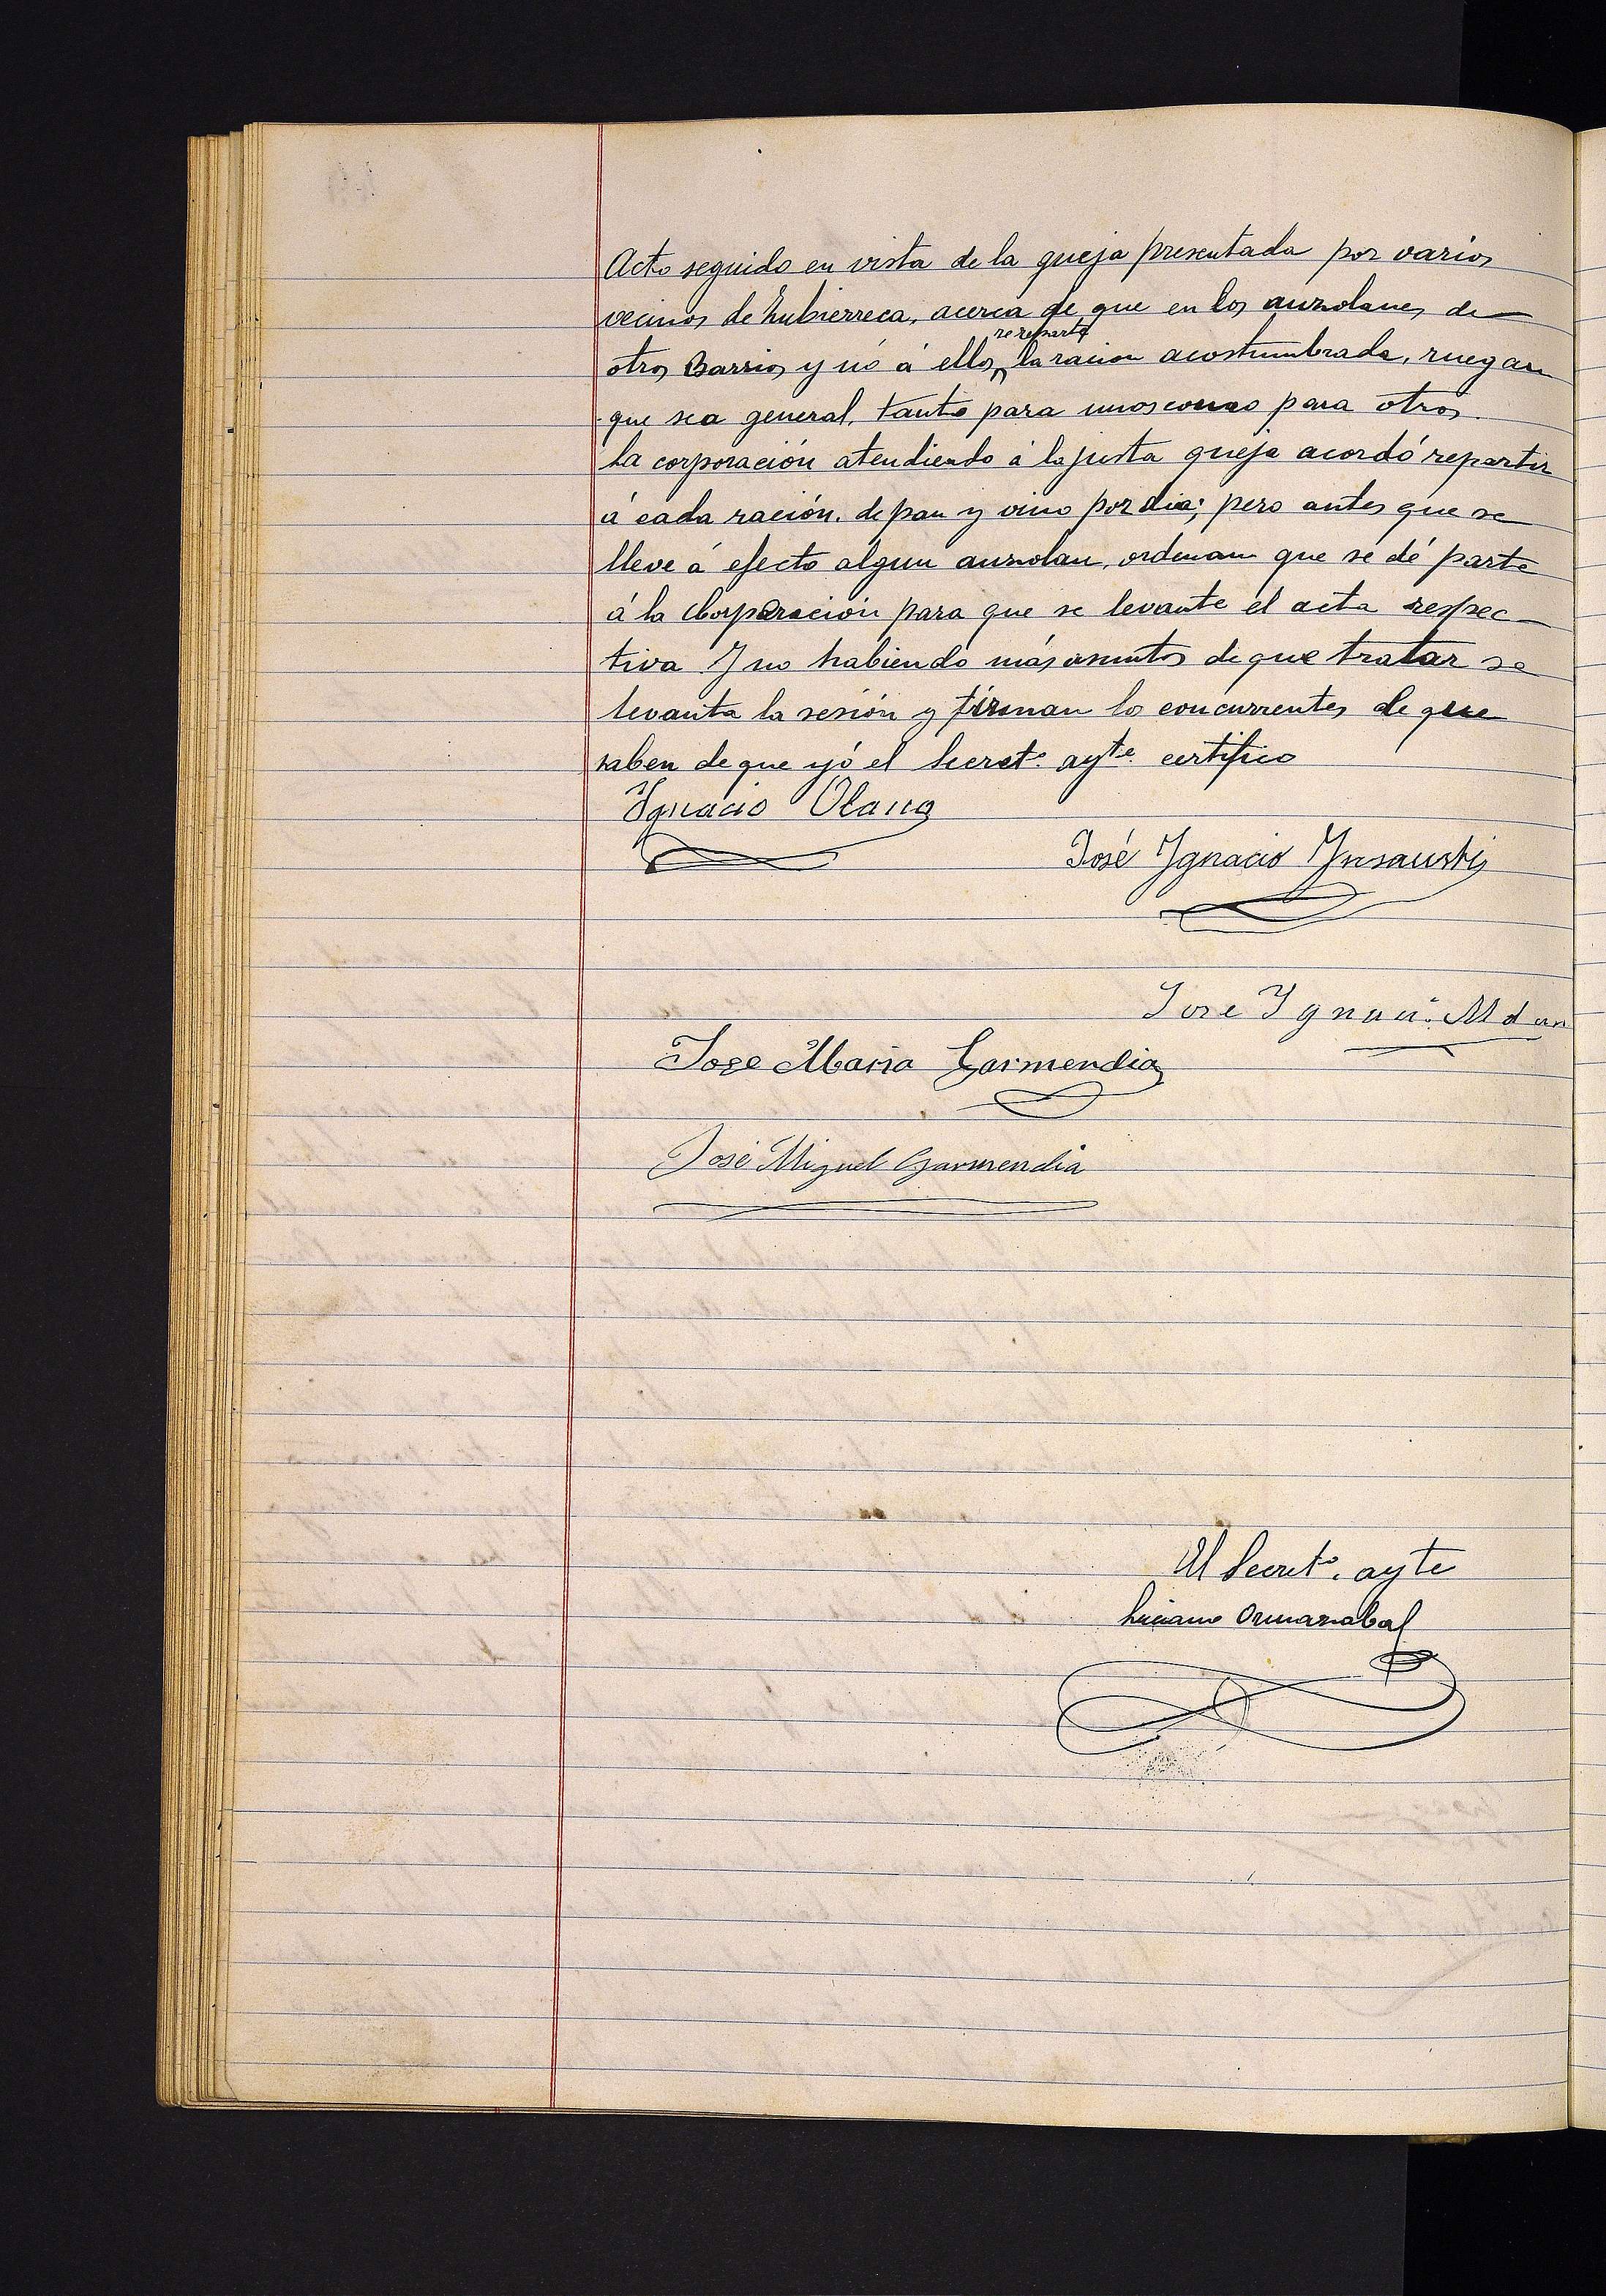 Acto seguido en vista de la queja presentada por varios
vecinos de Zubierreca, acerca de que en los auzolanes de
se reparte
otros Barrios y nó á ellos la racion acostumbrada, ruegan
que sea general, tanto para unos como para otros.
La corporación atendiendo á la justa queja acordó repartir
á cada ración, de pan y vino por dia; pero antes que se
lleve á efecto algun auzolan, ordenan que se dé parte
á la Corporación para que se levante el acta respec-
tiva Y no habiendo más asuntos de que tratar se
levanta la sesión y firman lo concurrentes de que
saben de que yó el Secret.º ayte. certifico
Ignacio Olano
José Ygnacio Ynsausti
Jose Ygnaci.º
Jose Maria Garmendia
José Miguel Garmendia
El Secret.º ayte
Luciano Ormazabal